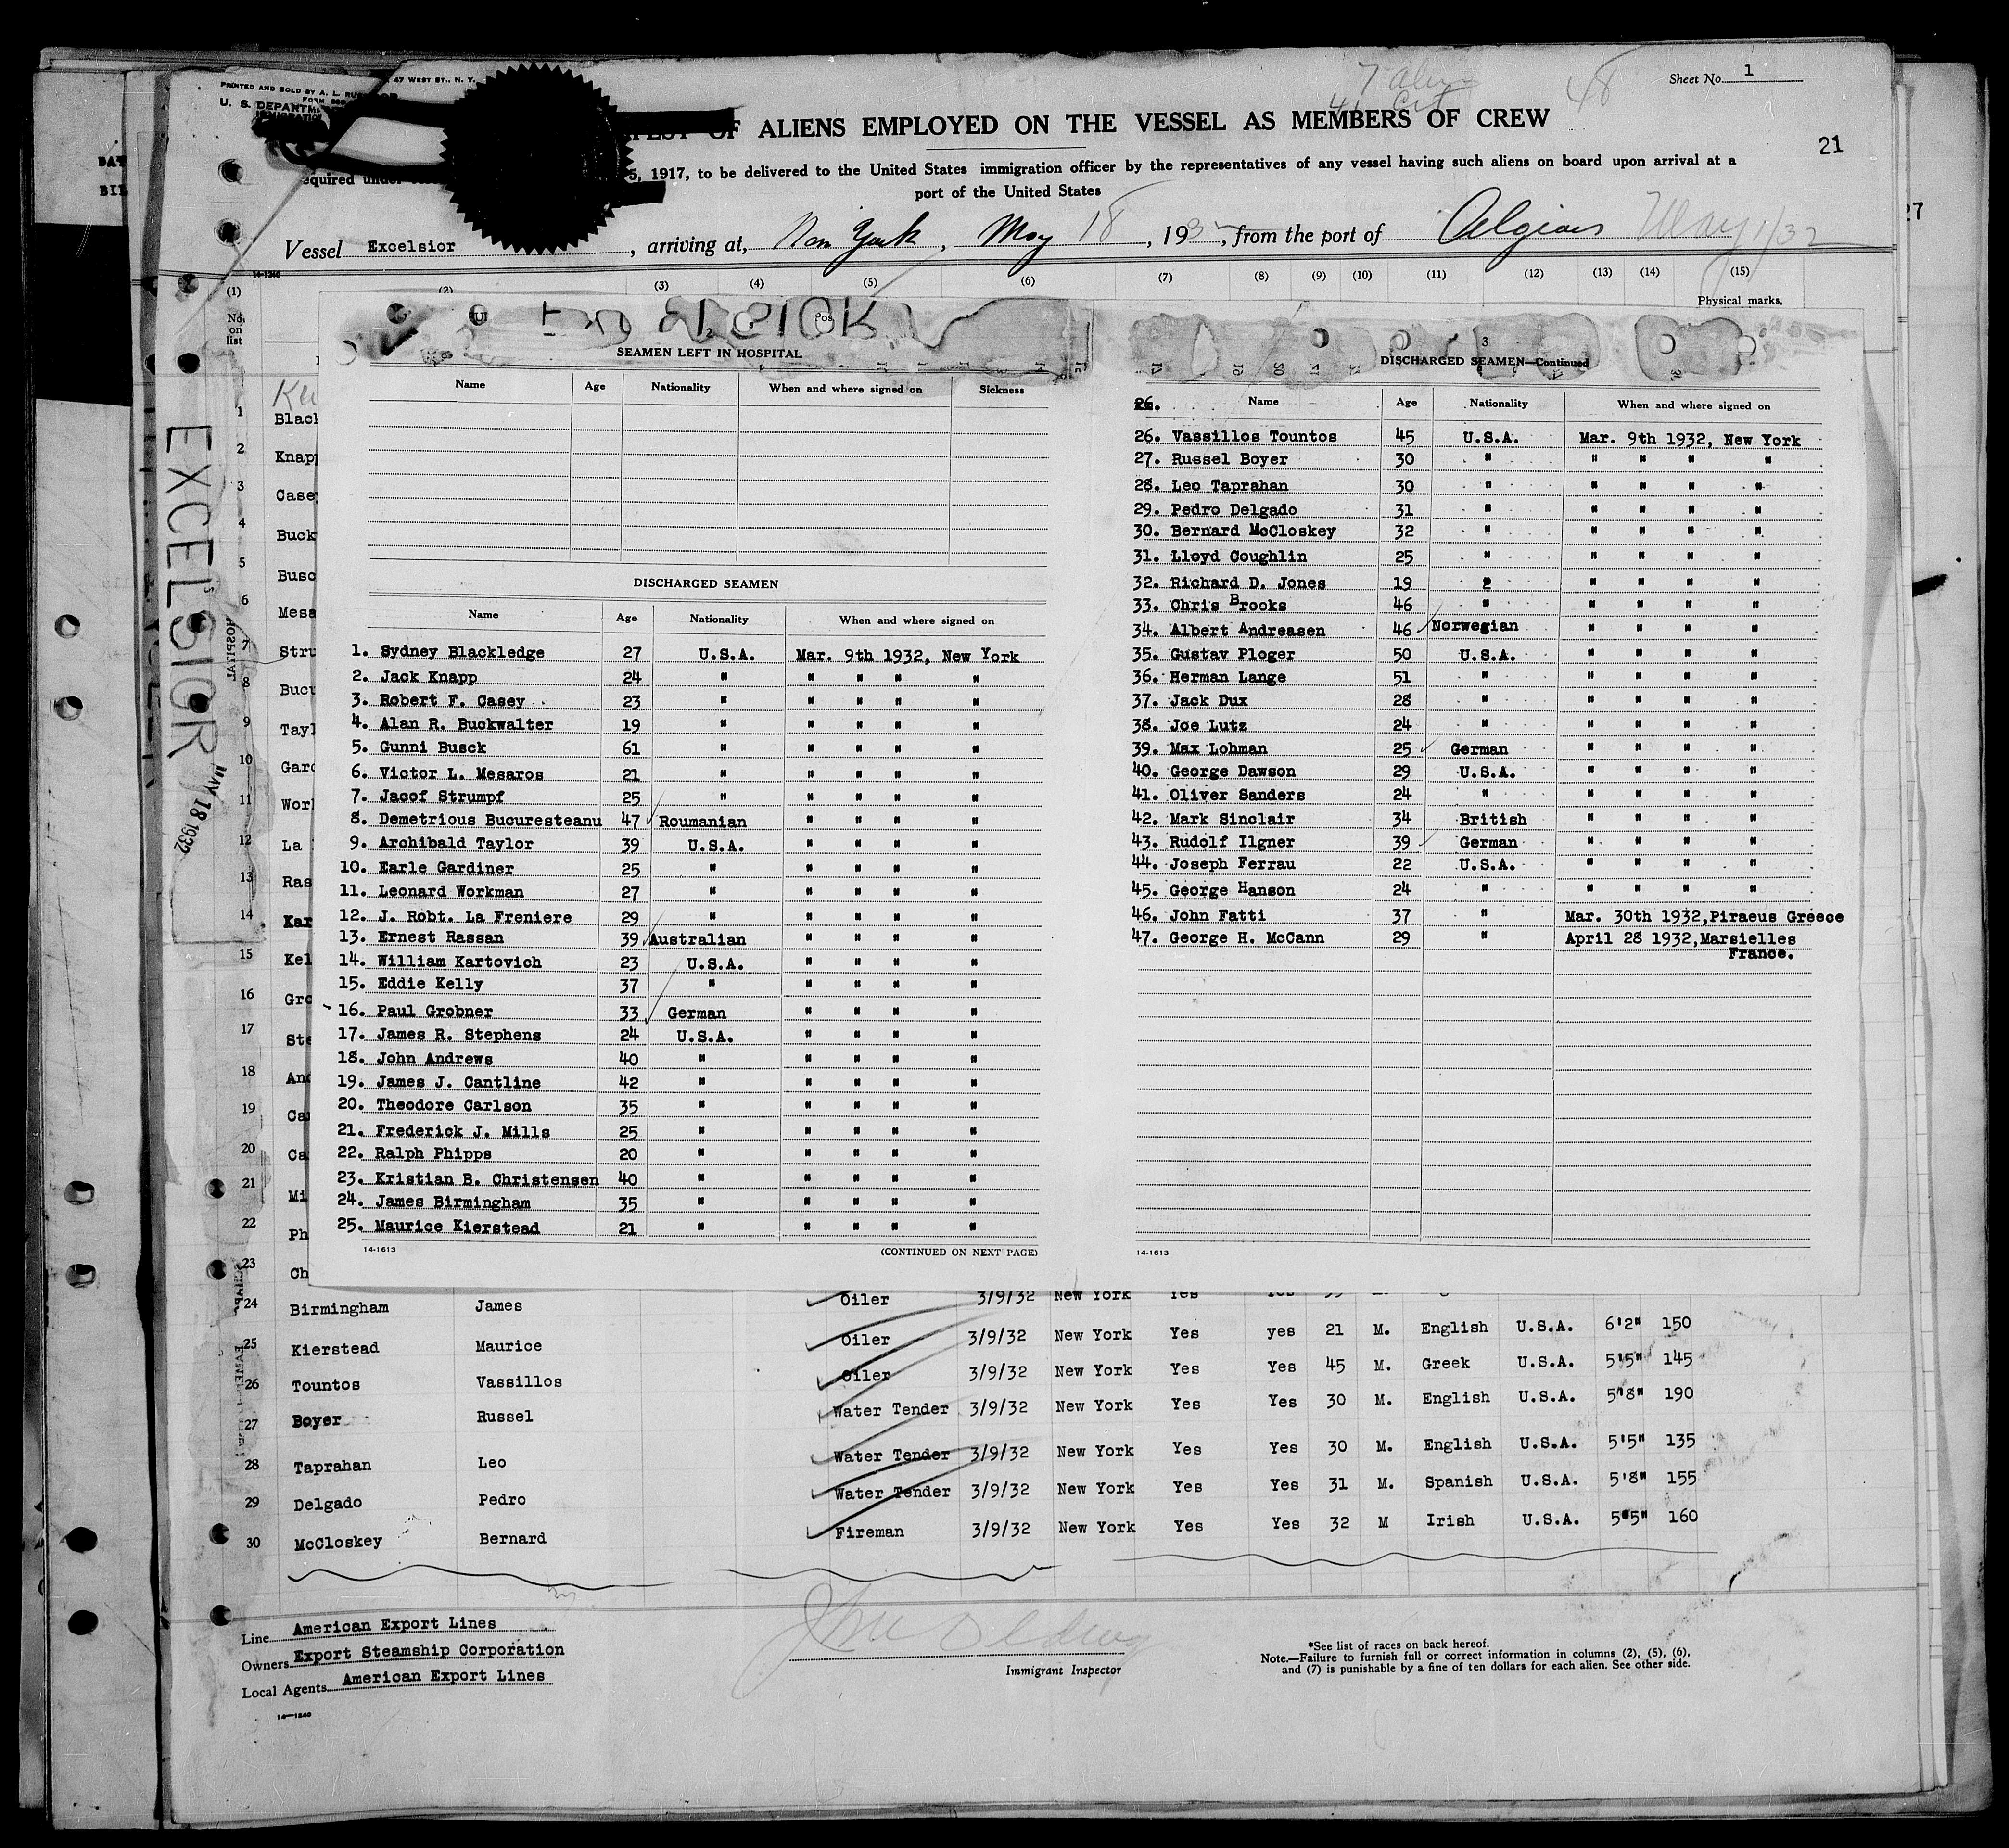 Sheet No. 1
PRINTED AND SOLD BY A. L.
47 WEST ST., N. Y.
U. S.
OF ALIENS EMPLOYED ON THE VESSEL AS MEMBERS OF CREW
21
5, 1917, to be delivered to the United States immigration officer by the representatives of any vessel having such aliens on board upon arrival at a
port of the United States
Vessel Excelsior, arriving at, New York, May 18, 193, from the port of
14-1240
(1) (2) (3) (4) (5) (6) (7) (8) (9) (10) (11) (12) (13) (14) (15)
No. on list
Physical marks,
EXCELSIOR
MAY 18 1932
SEAMEN LEFT IN HOSPITAL
Name Age Nationality When and where signed on Sickness
DISCHARGED SEAMEN
Name Age Nationality When and where signed on
1. Sydney Blackledge 27 U.S.A. Mar. 9th 1932, New York
2. Jack Knapp 24 " " " " "
3. Robert F. Casey 23 " " " " "
4. Alan R. Buckwalter 19 " " " " "
5. Gunni Busck 61 " " " " "
6. Victor L. Mesaros 21 " " " " "
7. Jacof Strumpf 25 " " " " "
8. Demetrious Bucuresteanu 47 Roumanian " " " "
9. Archibald Taylor 39 U.S.A. " " " "
10. Earle Gardiner 25 " " " " "
11. Leonard Workman 27 " " " " "
12. J. Robt. La Freniere 29 " " " " "
13. Ernest Rassan 39 Australian " " " "
14. William Kartovich 23 U.S.A. " " " "
15. Eddie Kelly 37 " " " " "
16. Paul Grobner 33 German " " " "
17. James R. Stephens 24 U.S.A. " " " "
18. John Andrews 40 " " " " "
19. James J. Cantline 42 " " " " "
20. Theodore Carlson 35 " " " " "
21. Frederick J. Mills 25 " " " " "
22. Ralph Phipps 20 " " " " "
23. Kristian B. Christensen 40 " " " " "
24. James Birmingham 35 " " " " "
25. Maurice Kierstead 21 " " " " "
14-1613 (CONTINUED ON NEXT PAGE)
3
DISCHARGED SEAMEN—Continued
26. Name Age Nationality When and where signed on
26. Vassillos Tountos 45 U.S.A. Mar. 9th 1932, New York
27. Russel Boyer 30 " " " " "
28. Leo Taprahan 30 " " " " "
29. Pedro Delgado 31 " " " " "
30. Bernard McCloskey 32 " " " " "
31. Lloyd Coughlin 25 " " " " "
32. Richard D. Jones 19 2 " " " "
33. Chris Brooks 46 " " " " "
34. Albert Andreasen 46 Norwegian " " " "
35. Gustav Ploger 50 U.S.A. " " " "
36. Herman Lange 51 " " " " "
37. Jack Dux 28 " " " " "
38. Joe Lutz 24 " " " " "
39. Max Lohman 25 German " " " "
40. George Dawson 29 U.S.A. " " " "
41. Oliver Sanders 24 " " " " "
42. Mark Sinclair 34 British " " " "
43. Rudolf Ilgner 39 German " " " "
44. Joseph Ferrau 22 U.S.A. " " " "
45. George Hanson 24 " " " " "
46. John Fatti 37 " Mar. 30th 1932,Piraeus Greece
47. George H. McCann 29 " April 28 1932,Marsielles
France.
14-1613
1 Black
2 Knapp
3 Casey
4 Buck
5 Busc
6 Mesa
7 Stru
8 Bucu
9 Tayl
10 Gard
11 Work
12 La
13 Ras
14 Kar
15 Kel
16 Gro
17 Ste
18 And
19 Ca
20 Ca
21 Mi
22 Ph
23 Ch
24 Birmingham James Oiler 3/9/32 New York Yes
25 Kierstead Maurice Oiler 3/9/32 New York Yes yes 21 M. English U.S.A. 6'2" 150
26 Tountos Vassillos Oiler 3/9/32 New York Yes Yes 45 M. Greek U.S.A. 5'5" 145
27 Boyer Russel Water Tender 3/9/32 New York Yes Yes 30 M. English U.S.A. 5'8" 190
28 Taprahan Leo Water Tender 3/9/32 New York Yes Yes 30 M. English U.S.A. 5'5" 135
29 Delgado Pedro Water Tender 3/9/32 New York Yes Yes 31 M. Spanish U.S.A. 5'8" 155
30 McCloskey Bernard Fireman 3/9/32 New York Yes Yes 32 M Irish U.S.A. 5'5" 160
Line American Export Lines
Owners Export Steamship Corporation
Local Agents American Export Lines
14-1240
Immigrant Inspector
*See list of races on back hereof.
Note.—Failure to furnish full or correct information in columns (2), (5), (6),
and (7) is punishable by a fine of ten dollars for each alien. See other side.